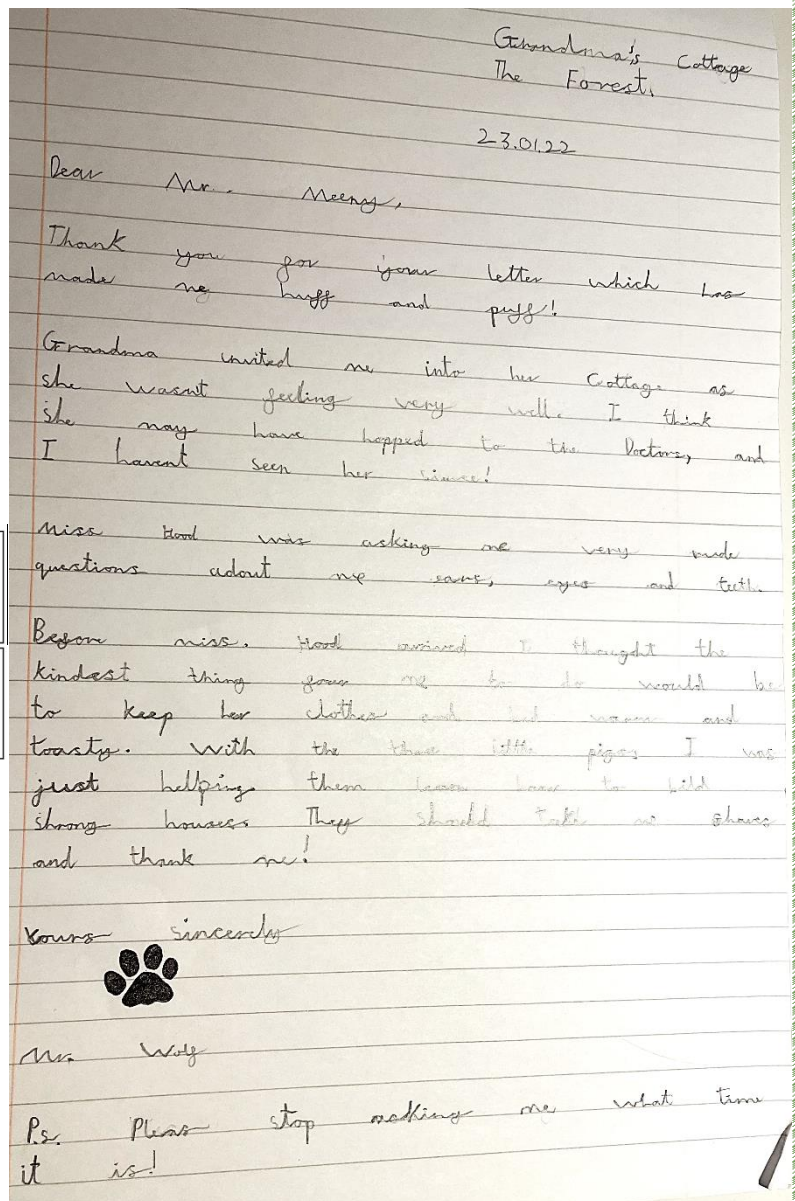 Grandma's Cottage
The Forest.
23.01.22
Dear Mr. Meeny,
Thank you for your letter which has
made me huff and puff!
Grandma invited me into her Cottage as
she wasn't feeling very well. I think
she may have hopped to the Doctors, and
I havent seen her since!
Miss Hood was asking me very rude
questions adout my ears, eyes and teeth.
Before miss. Hood arrived I thought the
kindest thing for me to do would be
to keep her clothes and bed warm and
toasty. With the three little pigs I was
just hellping them learn how to bild
strong houses. They should take me
and thank me!
Yours sincerely
Mr. Wolf
P.s. Pleas stop asking me what time
it is!